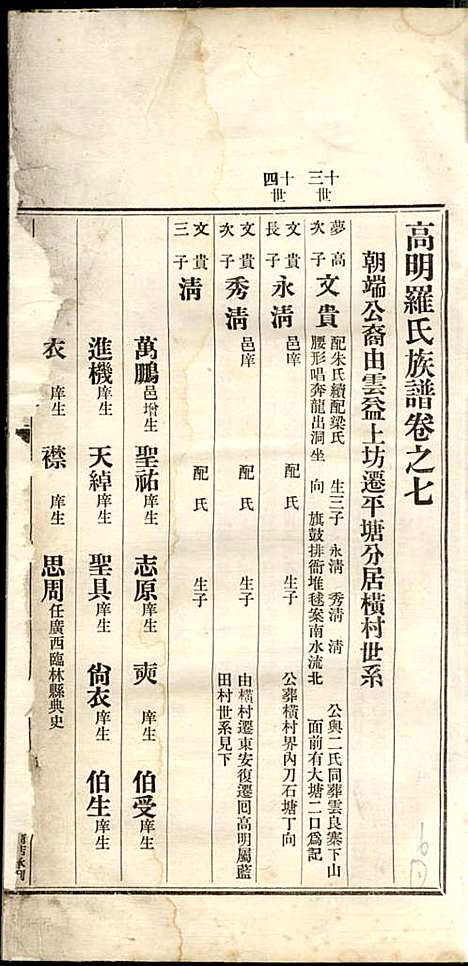 高明羅氏族譜卷之七
朝端公裔由雲益上坊遷平塘分居橫村世系
十三世
十四世
夢高次子 文貴 配朱氏續配梁氏 生三子 永淸 秀淸 淸 公與二氏同葬雲良寨下山
腰形唱奔龍出洞坐 向 旗鼓排衙堆毬案南水流北 面前有大塘二口爲記
文貴長子 永淸 邑庠 配 氏 生子 公葬橫村界內刀石塘丁向
文貴次子 秀淸 邑庠 配 氏 生子 由橫村遷東安復遷回高明屬藍
田村世系見下
文貴三子 淸 配 氏 生子
萬鵬邑增生 聖祐庠生 志原庠生 奭庠生 伯受庠生
進機庠生 天綽庠生 聖具庠生 尙衣庠生 伯生庠生
衣庠生 襟庠生 思周任廣西臨林縣典史